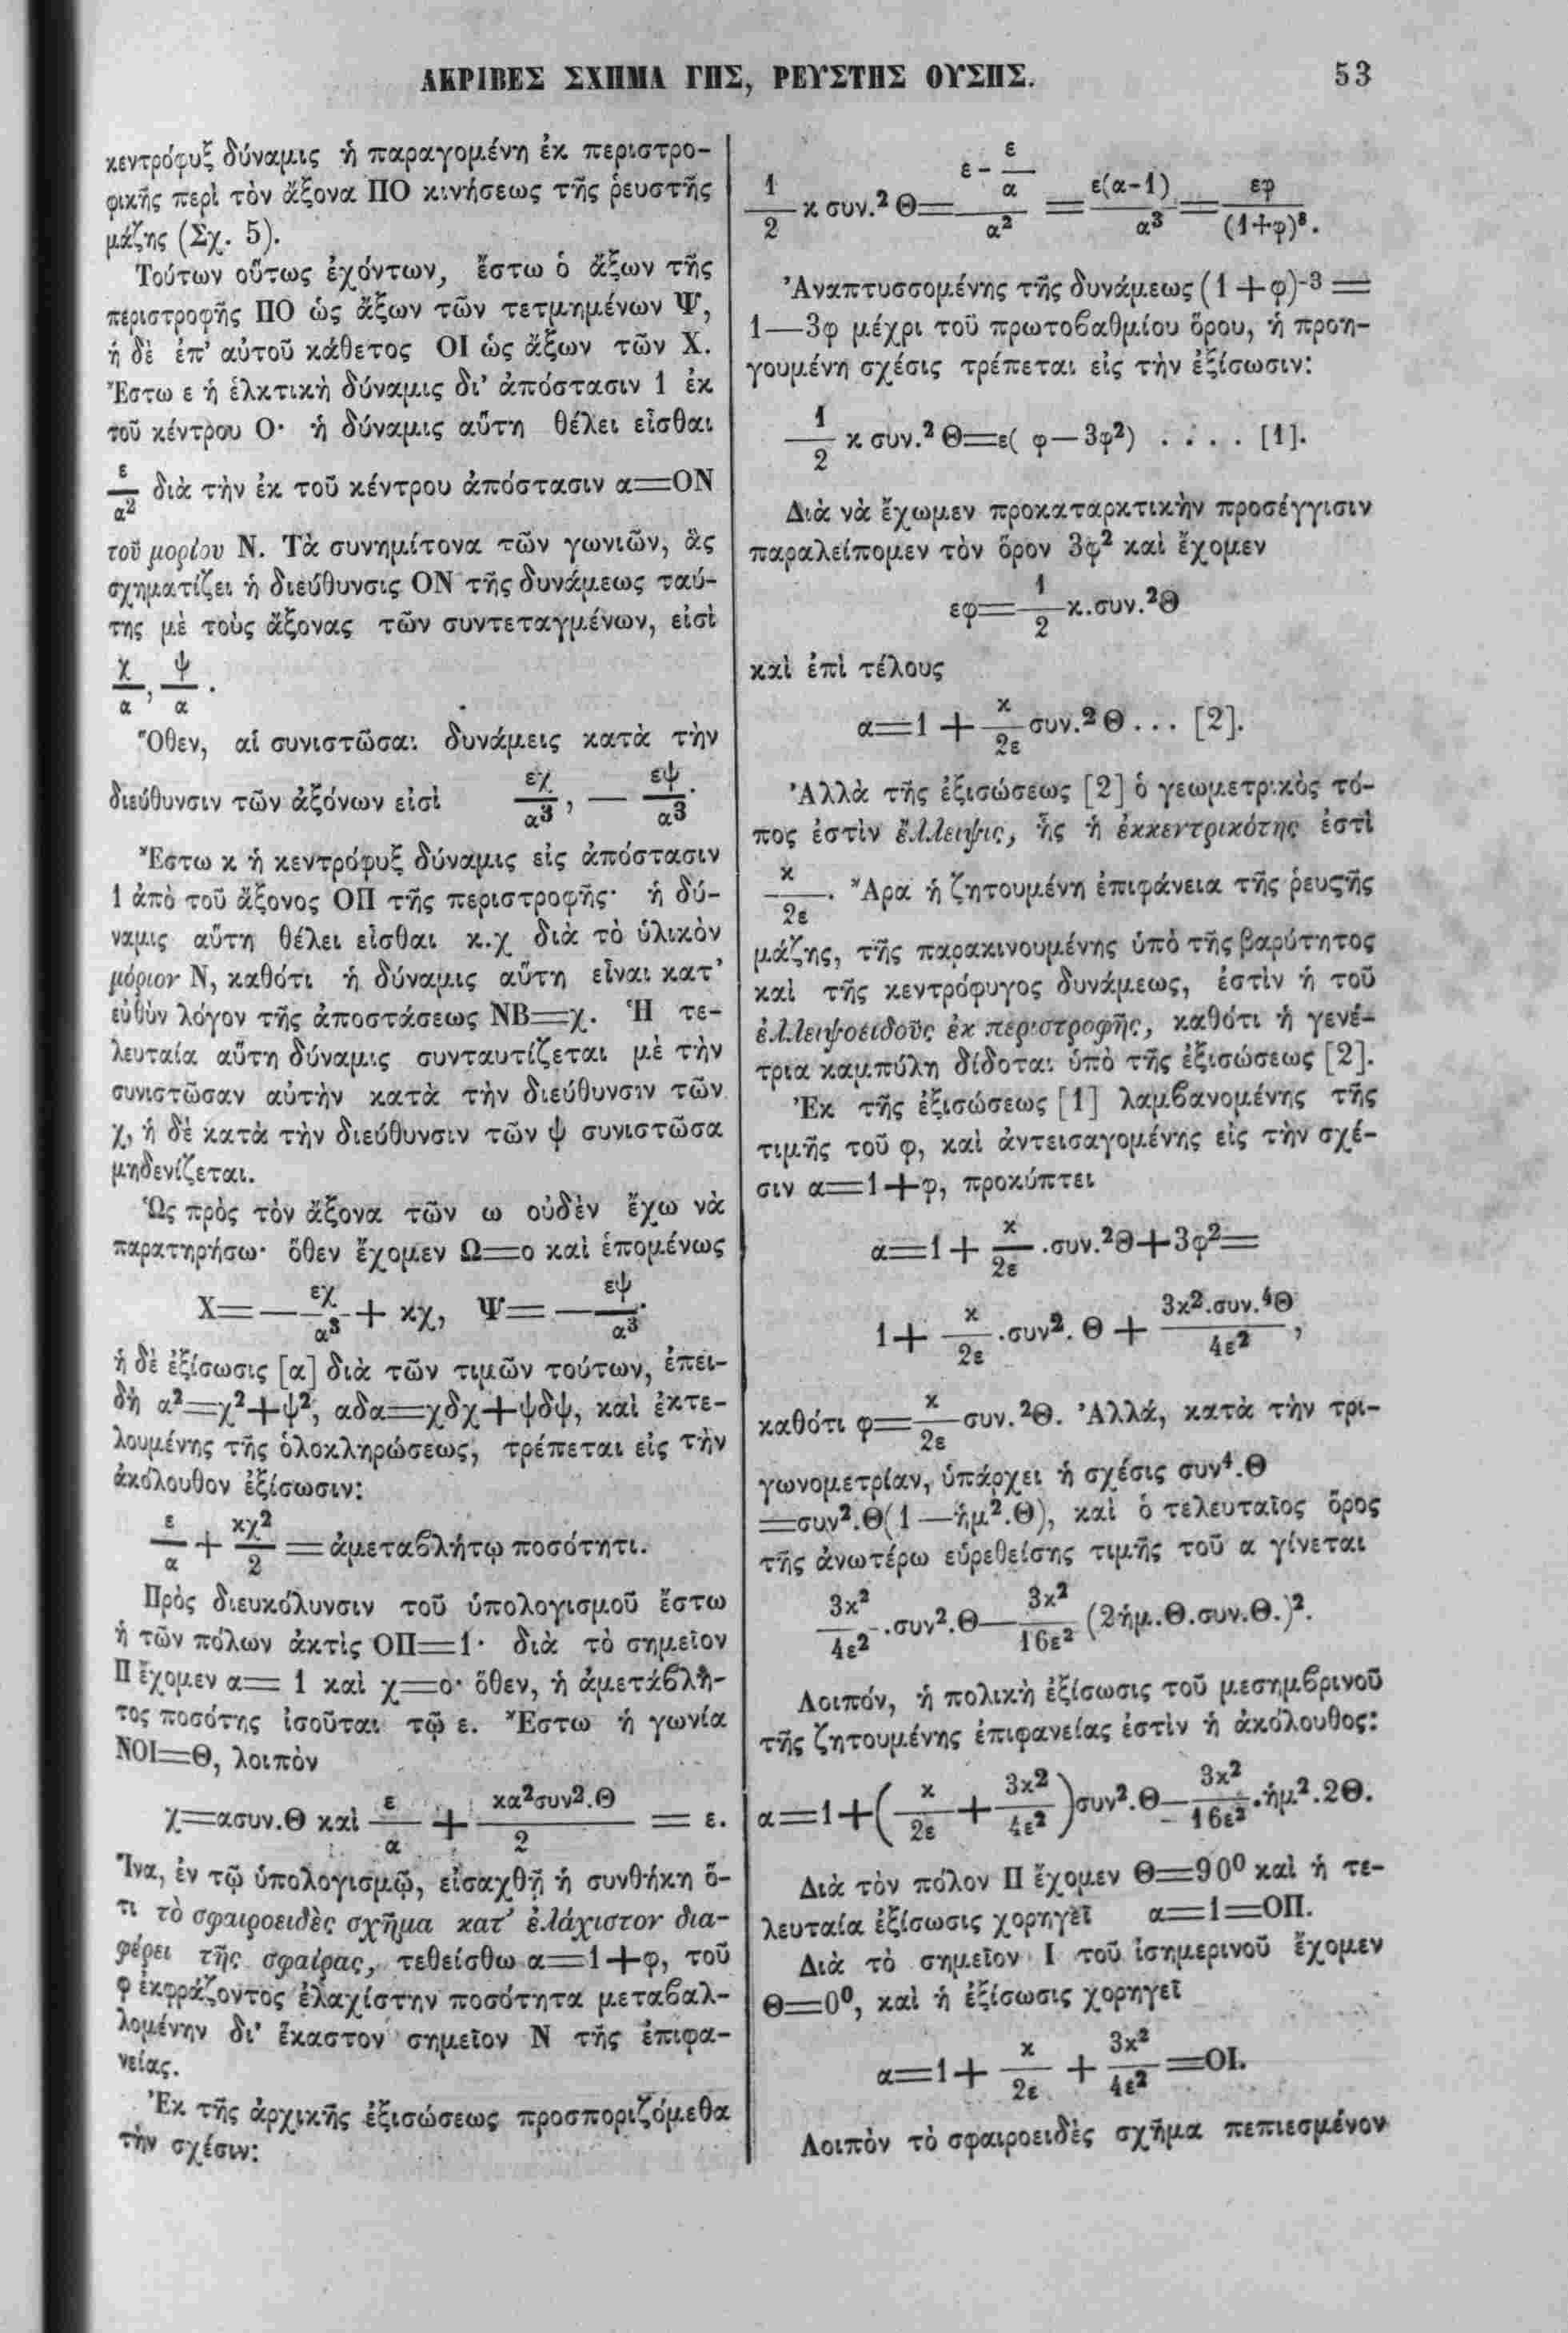 ΑΚΡΙΒΕΣ ΣΧΗΜΑ ΓΗΣ, ΡΕΥΣΤΗΣ ΟΥΣΗΣ. 53
κεντρόφυξ δύναμις ἡ παραγομένη ἐκ περιστρο-
φικῆς περὶ τὸν ἄξονα ΠΟ κινήσεως τῆς ῥευστῆς
μάζης (Σχ. 5).
Τούτων οὕτως ἐχόντων, ἔστω ὁ ἄξων τῆς
περιστροφῆς ΠΟ ὡς ἄξων τῶν τετμημένων Ψ,
ἡ δὲ ἐπ’ αὐτοῦ κάθετος ΟΙ ὡς ἄξων τῶν Χ.
Ἔστω ε ἡ ἑλκτικὴ δύναμις δι’ ἀπόστασιν 1 ἐκ
τοῦ κέντρου Ο· ἡ δύναμις αὕτη θέλει εἶσθαι
ε/α² διὰ τὴν ἐκ τοῦ κέντρου ἀπόστασιν α=ΟΝ
τοῦ μορίου Ν. Τὰ συνημίτονα τῶν γωνιῶν, ἃς
σχηματίζει ἡ διεύθυνσις ΟΝ τῆς δυνάμεως ταύ-
της μὲ τοὺς ἄξονας τῶν συντεταγμένων, εἰσὶ
χ/α, ψ/α.
Ὅθεν, αἱ συνιστῶσαι δυνάμεις κατὰ τὴν
διεύθυνσιν τῶν ἀξόνων εἰσὶ εχ/α³, — εψ/α³.
Ἔστω κ ἡ κεντρόφυξ δύναμις εἰς ἀπόστασιν
1 ἀπὸ τοῦ ἄξονος ΟΠ τῆς περιστροφῆς· ἡ δύ-
ναμις αὕτη θέλει εἶσθαι κ.χ διὰ τὸ ὑλικὸν
μόριον Ν, καθότι ἡ δύναμις αὕτη εἶναι κατ’
εὐθὺν λόγον τῆς ἀποστάσεως ΝΒ=χ. Ἡ τε-
λευταία αὕτη δύναμις συνταυτίζεται μὲ τὴν
συνιστῶσαν αὐτὴν κατὰ τὴν διεύθυνσιν τῶν
χ, ἡ δὲ κατὰ τὴν διεύθυνσιν τῶν ψ συνιστῶσα
μηδενίζεται.
Ὡς πρὸς τὸν ἄξονα τῶν ω οὐδὲν ἔχω νὰ
παρατηρήσω· ὅθεν ἔχομεν Ω=ο καὶ ἑπομένως
Χ=— εχ/α³ + κχ, Ψ=— εψ/α³.
ἡ δὲ ἐξίσωσις [α] διὰ τῶν τιμῶν τούτων, ἐπει-
δὴ α²=χ²+ψ², αδα=χδχ+ψδψ, καὶ ἐκτε-
λουμένης τῆς ὁλοκληρώσεως, τρέπεται εἰς τὴν
ἀκόλουθον ἐξίσωσιν:
ε/α + κχ²/2 = ἀμεταβλήτῳ ποσότητι.
Πρὸς διευκόλυνσιν τοῦ ὑπολογισμοῦ ἔστω
ἡ τῶν πόλων ἀκτὶς ΟΠ=1· διὰ τὸ σημεῖον
Π ἔχομεν α= 1 καὶ χ=ο· ὅθεν, ἡ ἀμετάβλη-
τος ποσότης ἰσοῦται τῷ ε. Ἔστω ἡ γωνία
ΝΟΙ=Θ, λοιπὸν
χ=ασυν.Θ καὶ ε/α + κα²συν².Θ/2 = ε.
Ἵνα, ἐν τῷ ὑπολογισμῷ, εἰσαχθῇ ἡ συνθήκη ὅ-
τι τὸ σφαιροειδὲς σχῆμα κατ’ ἐλάχιστον δια-
φέρει τῆς σφαίρας, τεθείσθω α=1+φ, τοῦ
φ ἐκφράζοντος ἐλαχίστην ποσότητα μεταβαλ-
λομένην δι’ ἕκαστον σημεῖον Ν τῆς ἐπιφα-
νείας.
Ἐκ τῆς ἀρχικῆς ἐξισώσεως προσποριζόμεθα
τὴν σχέσιν:
1/2 κ συν.² Θ= (ε - ε/α)/α² = ε(α-1)/α³ = εφ/(1+φ)³.
Ἀναπτυσσομένης τῆς δυνάμεως (1+φ)-³ =
1—3φ μέχρι τοῦ πρωτοβαθμίου ὅρου, ἡ προη-
γουμένη σχέσις τρέπεται εἰς τὴν ἐξίσωσιν:
1/2 κ συν.² Θ=ε( φ—3φ²) . . . . [1].
Διὰ νὰ ἔχωμεν προκαταρκτικὴν προσέγγισιν
παραλείπομεν τὸν ὅρον 3φ² καὶ ἔχομεν
εφ= 1/2 κ.συν.²Θ
καὶ ἐπὶ τέλους
α=1 + κ/2ε συν.²Θ... [2].
Ἀλλὰ τῆς ἐξισώσεως [2] ὁ γεωμετρικὸς τό-
πος ἐστὶν ἔλλειψις, ἧς ἡ ἐκκεντρικότης ἐστὶ
κ/2ε. Ἄρα ἡ ζητουμένη ἐπιφάνεια τῆς ῥευςῆς
μάζης, τῆς παρακινουμένης ὑπὸ τῆς βαρύτητος
καὶ τῆς κεντρόφυγος δυνάμεως, ἐστὶν ἡ τοῦ
ἐλλειψοειδοῦς ἐκ περιστροφῆς, καθότι ἡ γενέ-
τρια καμπύλη δίδοται ὑπὸ τῆς ἐξισώσεως [2].
Ἐκ τῆς ἐξισώσεως [1] λαμβανομένης τῆς
τιμῆς τοῦ φ, καὶ ἀντεισαγομένης εἰς τὴν σχέ-
σιν α=1+φ, προκύπτει
α=1+ κ/2ε .συν.²Θ+3φ²=
1+ κ/2ε .συν². Θ + 3κ².συν.⁴Θ/4ε²,
καθότι φ= κ/2ε συν.²Θ. Ἀλλά, κατὰ τὴν τρι-
γωνομετρίαν, ὑπάρχει ἡ σχέσις συν⁴.Θ
=συν².Θ(1—ἡμ².Θ), καὶ ὁ τελευταῖος ὅρος
τῆς ἀνωτέρω εὑρεθείσης τιμῆς τοῦ α γίνεται
3κ²/4ε² .συν².Θ— 3κ²/16ε² (2ἡμ.Θ.συν.Θ.)².
Λοιπόν, ἡ πολικὴ ἐξίσωσις τοῦ μεσημβρινοῦ
τῆς ζητουμένης ἐπιφανείας ἐστὶν ἡ ἀκόλουθος:
α=1+( κ/2ε + 3κ²/4ε² )συν².Θ— 3κ²/16ε² .ἡμ².2Θ.
Διὰ τὸν πόλον Π ἔχομεν Θ=90⁰ καὶ ἡ τε-
λευταία ἐξίσωσις χορηγεῖ α=1=ΟΠ.
Διὰ τὸ σημεῖον Ι τοῦ ἰσημερινοῦ ἔχομεν
Θ=0⁰, καὶ ἡ ἐξίσωσις χορηγεῖ
α=1+ κ/2ε + 3κ²/4ε² =ΟΙ.
Λοιπὸν τὸ σφαιροειδὲς σχῆμα πεπιεσμένον